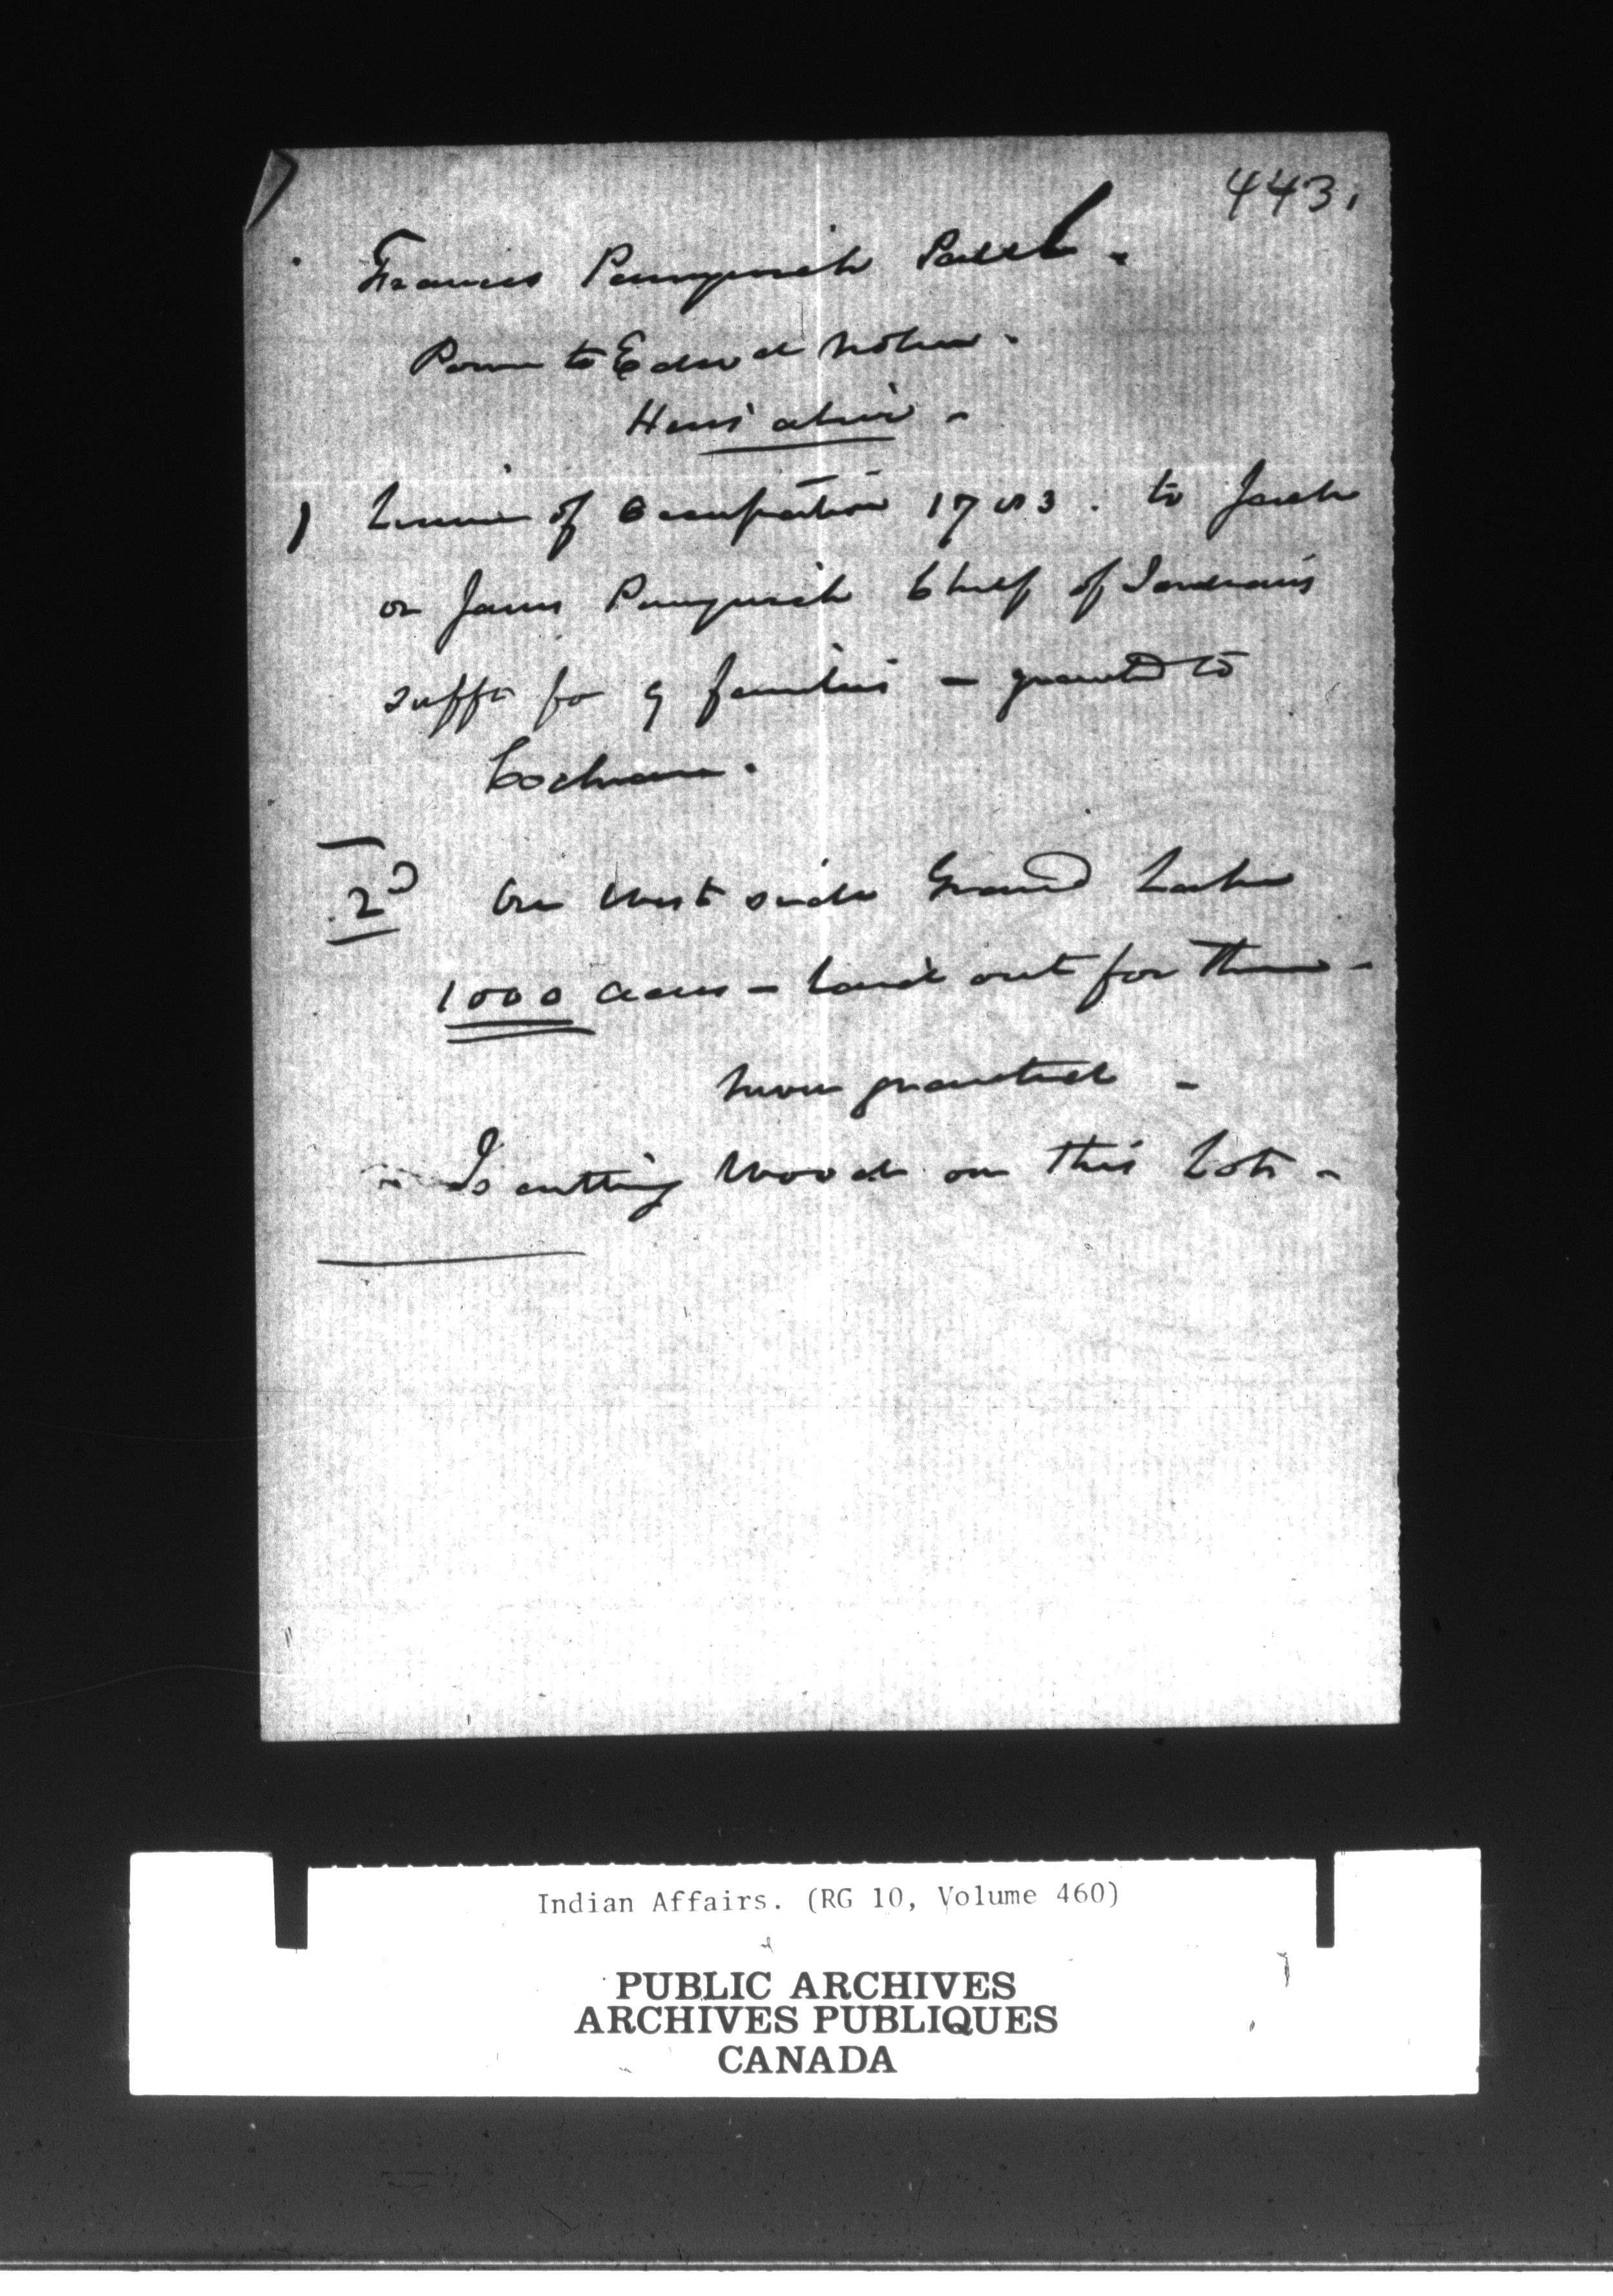 443.
Francis Paul
to Edwd
Heirs alive -
1 License of Occupation 1783. to Jack
or James Chief of Indians
Sufft for 9 families - granted to
Cochrane.
2D On West side Grand Lake
1000 acres - laid out for them -
granted -
Is cutting Wood on this Lot -
Indian Affairs. (RG 10, Volume 460)
PUBLIC ARCHIVES
ARCHIVES PUBLIQUES
CANADA